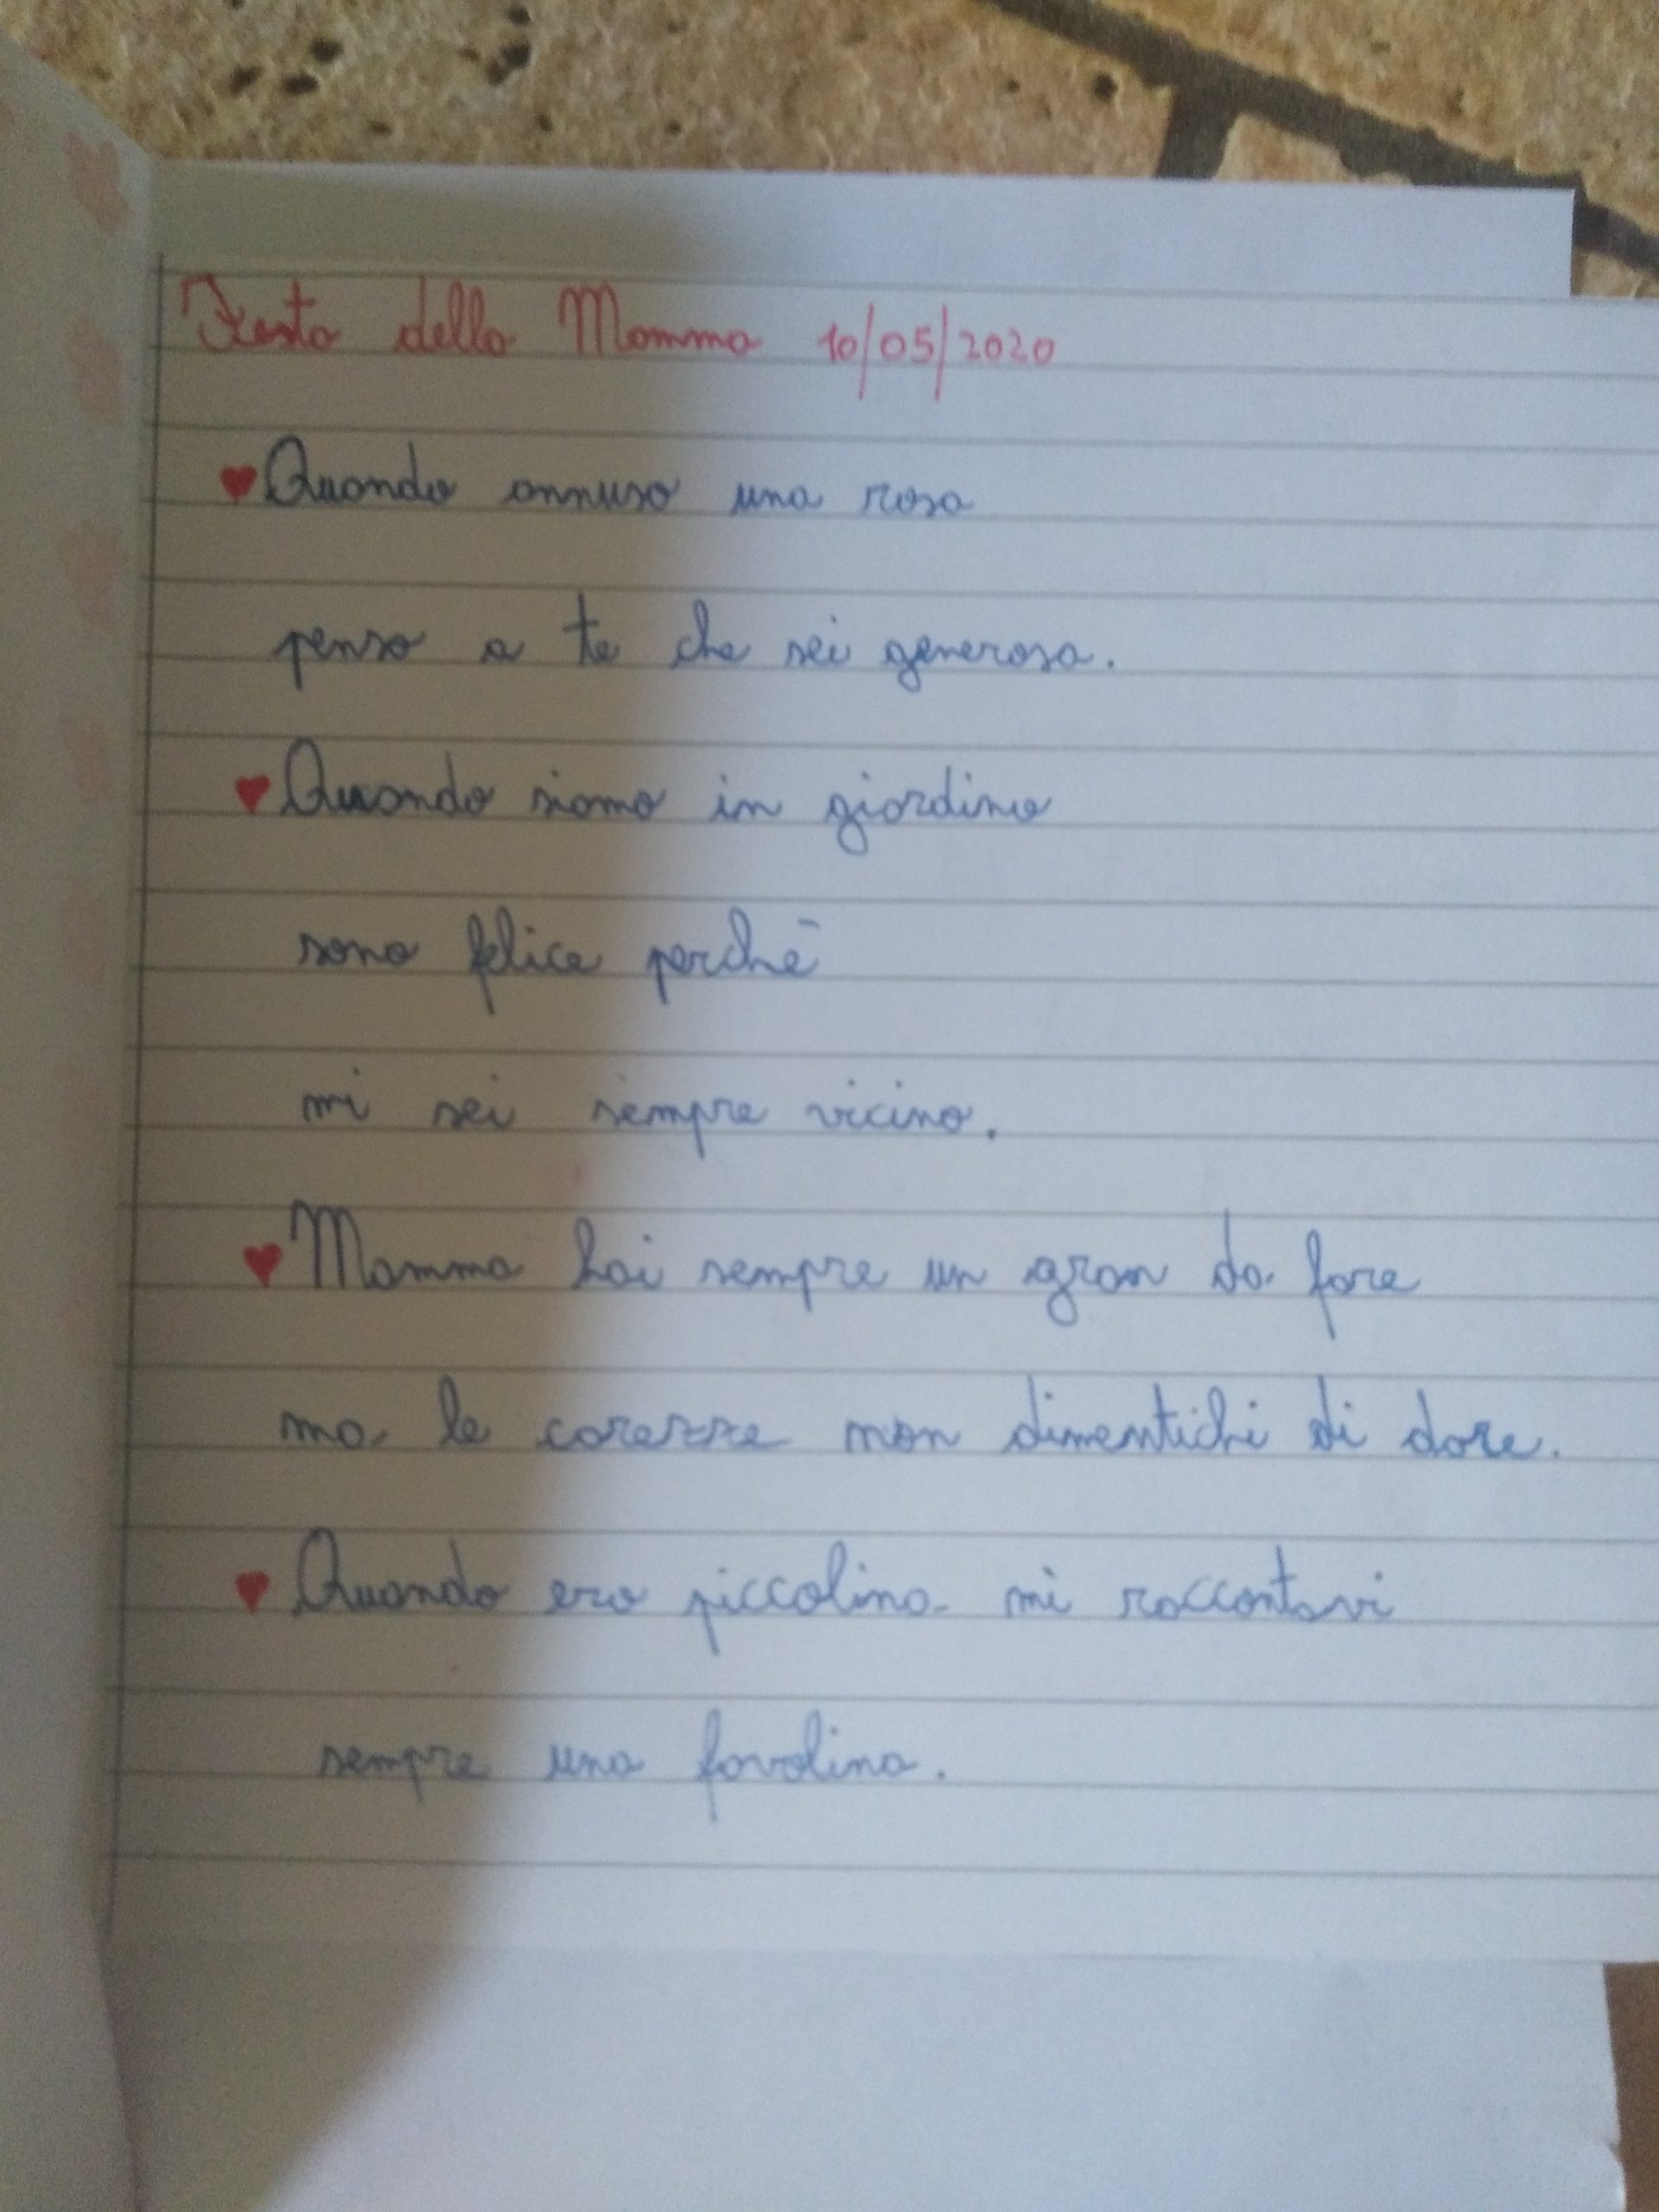 Festa della Mamma 10/05/2020
Quando annuso una rosa
penso a te che sei generosa.
Quando siamo in giardino
sono felice perchè
mi sei sempre vicino.
Mamma hai sempre un gran da fare
ma le carezze non dimentichi di dare.
Quando ero piccolina mi raccontavi
sempre una favolina.